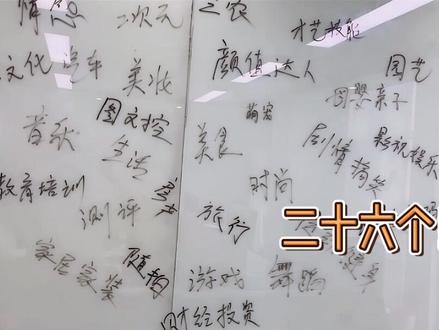 情感 二次元 三农 才艺技能
文化 汽车 美妆 颜值达人 园艺
音乐 图文控 萌宠 母婴亲子
生活 美食 剧情搞笑 影视娱乐
教育培训 测评 房产 时尚
旅行 二十六个
家居家装 随拍 游戏 舞蹈
财经投资